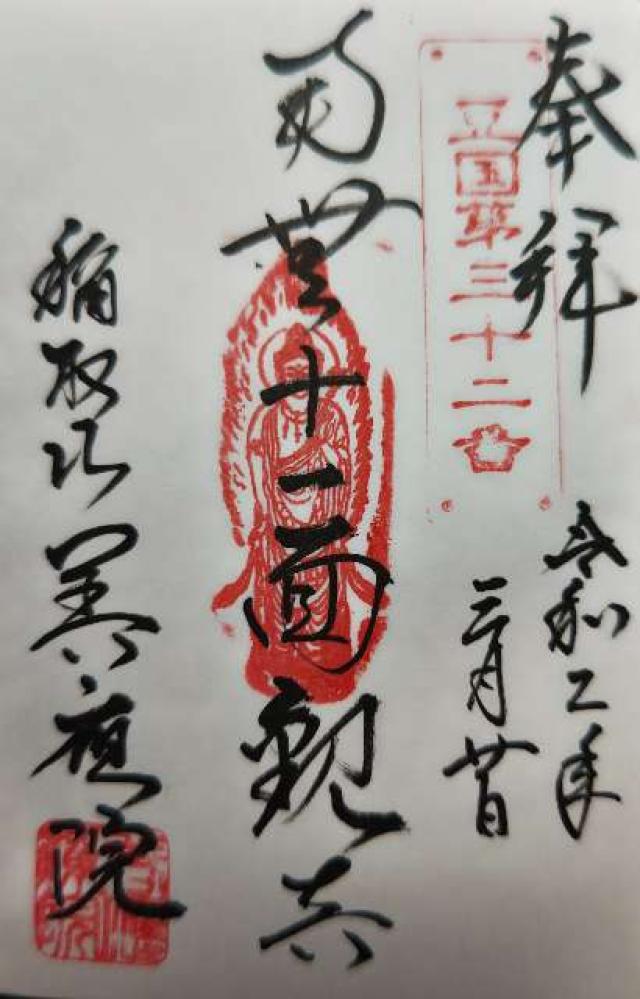 奉拝
豆国第三十二
令和二年
三月廿日
南無十一面観音
稲取
善應院